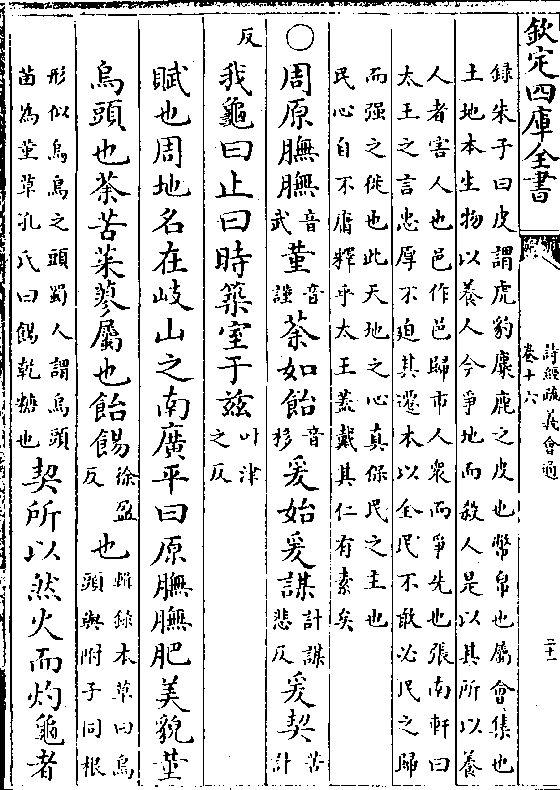 欽定四庫全書
詩經疏義會通
卷十六
二十
録朱子曰皮謂虎豹麋鹿之皮也幣帛也屬會集也
土地本生物以養人今爭地而殺人是以其所以養
人者害人也邑作邑歸市人衆而爭先也張南軒曰
太王之言忠厚不迫其遷本以全民不敢必民之歸
而强之徙也此天地之心真保民之主也
民心自不庸釋乎太王蓋戴其仁有素矣
○周原膴膴音武堇音謹荼如飴音移爰始爰謀叶謀悲反爰契苦計
反
我龜曰止曰時築室于兹叶津之反
賦也周地名在岐山之南廣平曰原膴膴肥美貌堇
烏頭也荼苦菜蓼屬也飴餳徐盈反也輯録本草曰烏頭與附子同根
形似烏鳥之頭蜀人謂烏頭
苗為堇草孔氏曰餳乾糖也
契所以然火而灼龜者